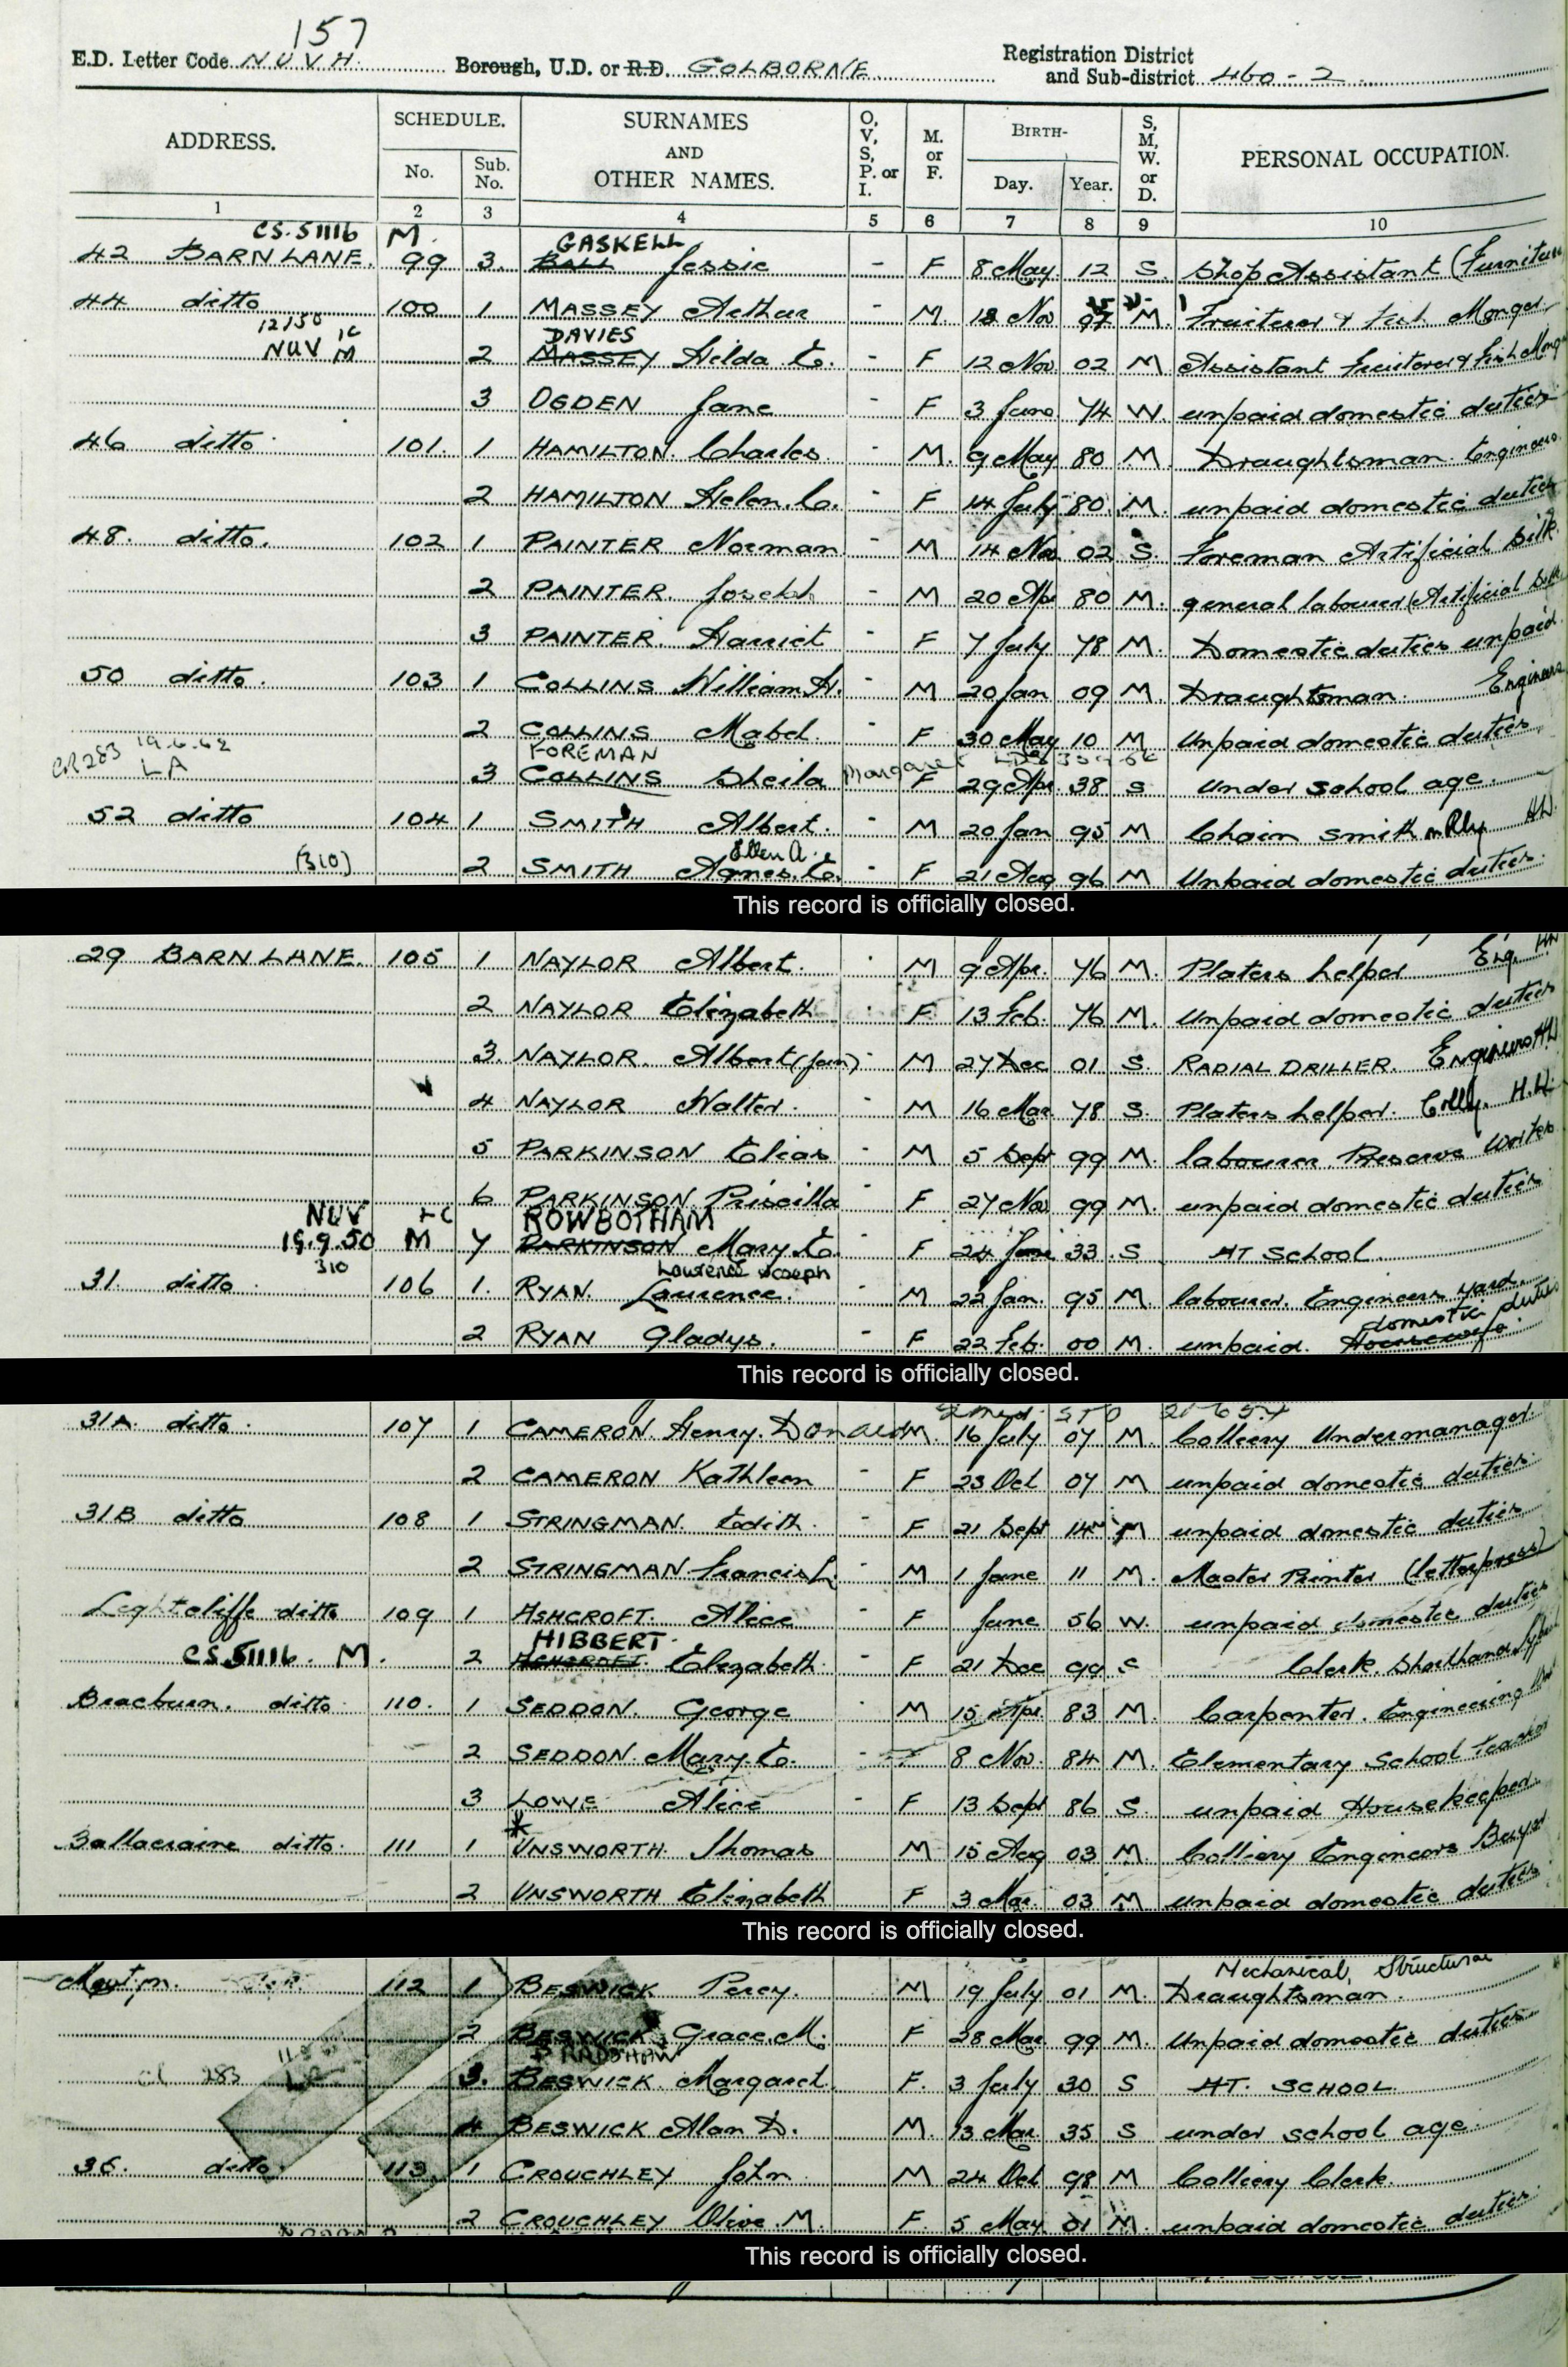 157
E.D. Letter Code NUVH. Borough, U.D. or R.D. GOLBORNE Registration District and Sub-district 460-2
ADDRESS. SCHEDULE. No. Sub. No. SURNAMES AND OTHER NAMES. O, V, S, P. or I. M. or F. BIRTH- Day. Year. S, M, W. or D. PERSONAL OCCUPATION.
1 2 3 4 5 6 7 8 9 10
CS.51116 M. GASKELL
42 BARN LANE. 99 3. BALL Jessie - F 8 May 12 S. Shop Assistant (Furniture
44 ditto 100 1 MASSEY Arthur - M. 18 Nov 97 M. Fruiterer & Fish Monger.
12/50 NUV M DAVIES
2 MASSEY Hilda E. - F 12 Nov 02 M Assistant Fruiterer & Fish Mong
3 OGDEN Jane - F 3 June 74 W. unpaid domestic duties
46 ditto 101. 1 HAMILTON. Charles. - M. 9 May 80 M. Draughtsman. Engineers
2 HAMILTON Helen. C. - F 14 July 80. M. unpaid domestic duties
48. ditto. 102 1 PAINTER Norman - M 14 Nov 02 S. Foreman Artificial Silk.
2 PAINTER. Joseph - M 20 Apr 80 M. general labourer (Artificial Silk
3 PAINTER. Harriet - F 7 July 78 M. Domestic duties unpaid.
50 ditto. 103 1 COLLINS William H. - M 20 Jan 09 M. Draughtsman. Engineers
2 COLLINS Mabel. - F 30 May 10 M Unpaid domestic duties
CR283 19.6.62 LA FOREMAN Margaret
3 COLLINS Sheila F 29 Apr. 38 S Under school age.
52 ditto 104 1 SMITH Albert. - M 20 Jan 95 M Chain Smith on Rly HW.
Ellen A.
(310) 2 SMITH Agnes. E. - F 21 Aug 96 M Unpaid domestic duties.
This record is officially closed.
29 BARN LANE. 105 1 NAYLOR Albert. - M 9 Apr. 76 M. Platers helper Eng. HW
2 NAYLOR Elizabeth - F 13 Feb. 76 M. Unpaid domestic duties
3. NAYLOR. Albert (Jun) - M 27 Dec 01 S. RADIAL DRILLER. Engineers HW
4 NAYLOR Walter. - M 16 Mar 78 S. Platers helper. Colly. H.W.
5 PARKINSON Elias - M 5 Sept 99 M. labourer. Reserve Writer
6 PARKINSON Priscilla - F 27 Nov 99 M. unpaid domestic duties
NUV ROWBOTHAM
19.9.50 M 7 PARKINSON Mary. E. - F 24 June 33 S AT SCHOOL.
310 Lawrence Joseph
31. ditto 106 1. RYAN. Laurence. - M 22 Jan. 95 M. labourer. Engineers yard.
domestic duties
2 RYAN Gladys. - F 22 Feb. 00 M. unpaid. Housewife.
This record is officially closed.
31A ditto. 107 1 CAMERON. Henry. Donald M. 16 July 07 M. Colliery Undermanager.
2 CAMERON Kathleen - F 23 Oct 07 M unpaid domestic duties.
31B ditto 108 1 STRINGMAN. Edith. - F 21 Sept 14 M unpaid domestic duties
2 STRINGMAN. Francis L. - M 1 June 11 M. Master Printer (letterpress)
Lightcliffe ditto 109 1 ASHCROFT. Alice - F June 56 W. unpaid domestic duties
HIBBERT
CS 51116. M. 2 ASHCROFT. Elizabeth. - F 21 Dec 99 S Clerk. Shorthand Typist
Braeburn. ditto 110. 1 SEDDON. George M 15 Apr 83 M. Carpenter. Engineering
2 SEDDON. Mary. E. - F 8 Nov. 84 M. Elementary School Teacher
3 LOWE Alice - F 13 Sept 86 S. unpaid Housekeeper.
Ballacraine ditto. 111 1 UNSWORTH. Thomas M 15 Aug 03 M. Colliery Engineers Buyer
2 UNSWORTH Elizabeth F 3 Mar. 03 M unpaid domestic duties
This record is officially closed.
Mechanical, Structural
112 1 BESWICK Percy. M 19 July 01 M. Draughtsman.
2 BESWICK Grace. M. F 28 Mar 99 M. Unpaid domestic duties
BRADSHAW
283 3. BESWICK. Margaret. F. 3 July 30 S AT. SCHOOL
4 BESWICK Alan D. M. 13 Mar. 35 S under school age.
36. ditto 113. 1 CROUCHLEY John M 24 Oct 98 M Colliery Clerk.
2 CROUCHLEY Olive. M. F. 5 May 01 M. unpaid domestic duties.
This record is officially closed.